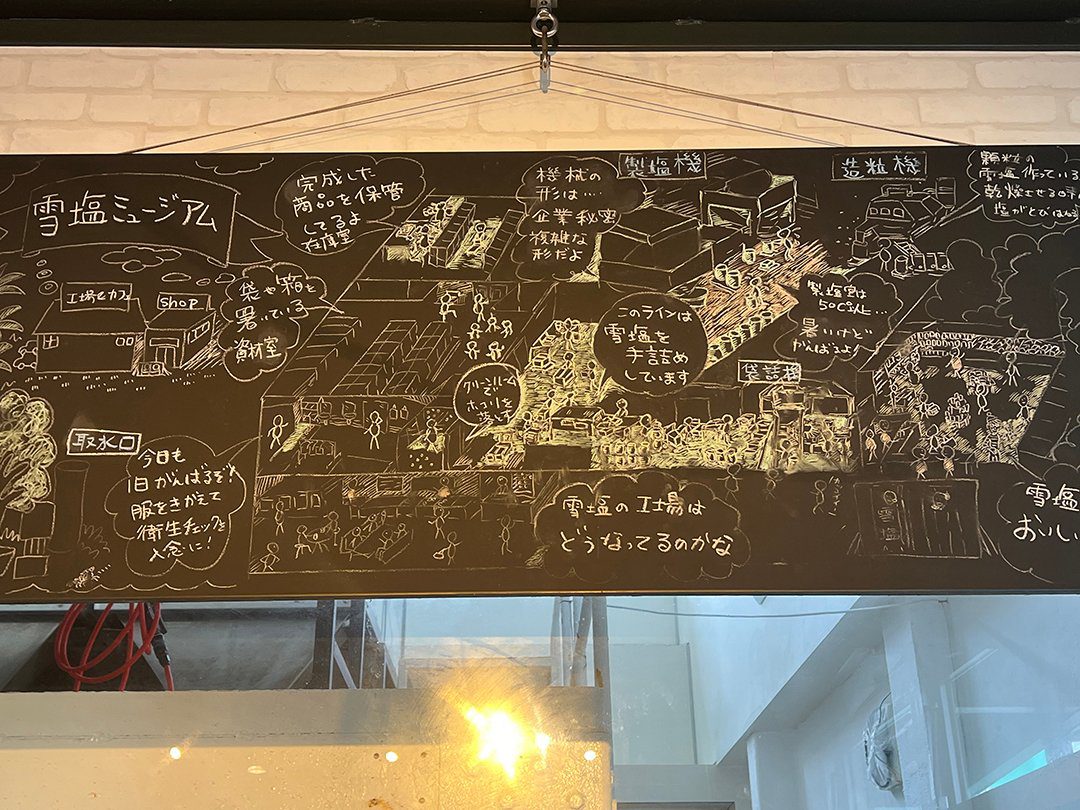 雪塩ミュージアム
工場&カフェ
SHOP
完成した
商品を保管
してるよ
在庫室
袋や箱を
置いている
資材室
機械の
形は…
企業秘密
複雑な
形だよ
製塩機
造粒機
顆粒の
雪塩作っている
乾燥させる
塩がとびはね
このラインは
雪塩を
手詰め
しています
製塩室は
50℃以上…
暑いけど
がんばるよ!
クリーンルーム
で
ホコリを
袋詰機
取水口
今日も
1日がんばるぞ!
服をきがえて
衛生チェックを
入念に!
雪塩の工場は
どうなってるのかな
雪塩
おいし